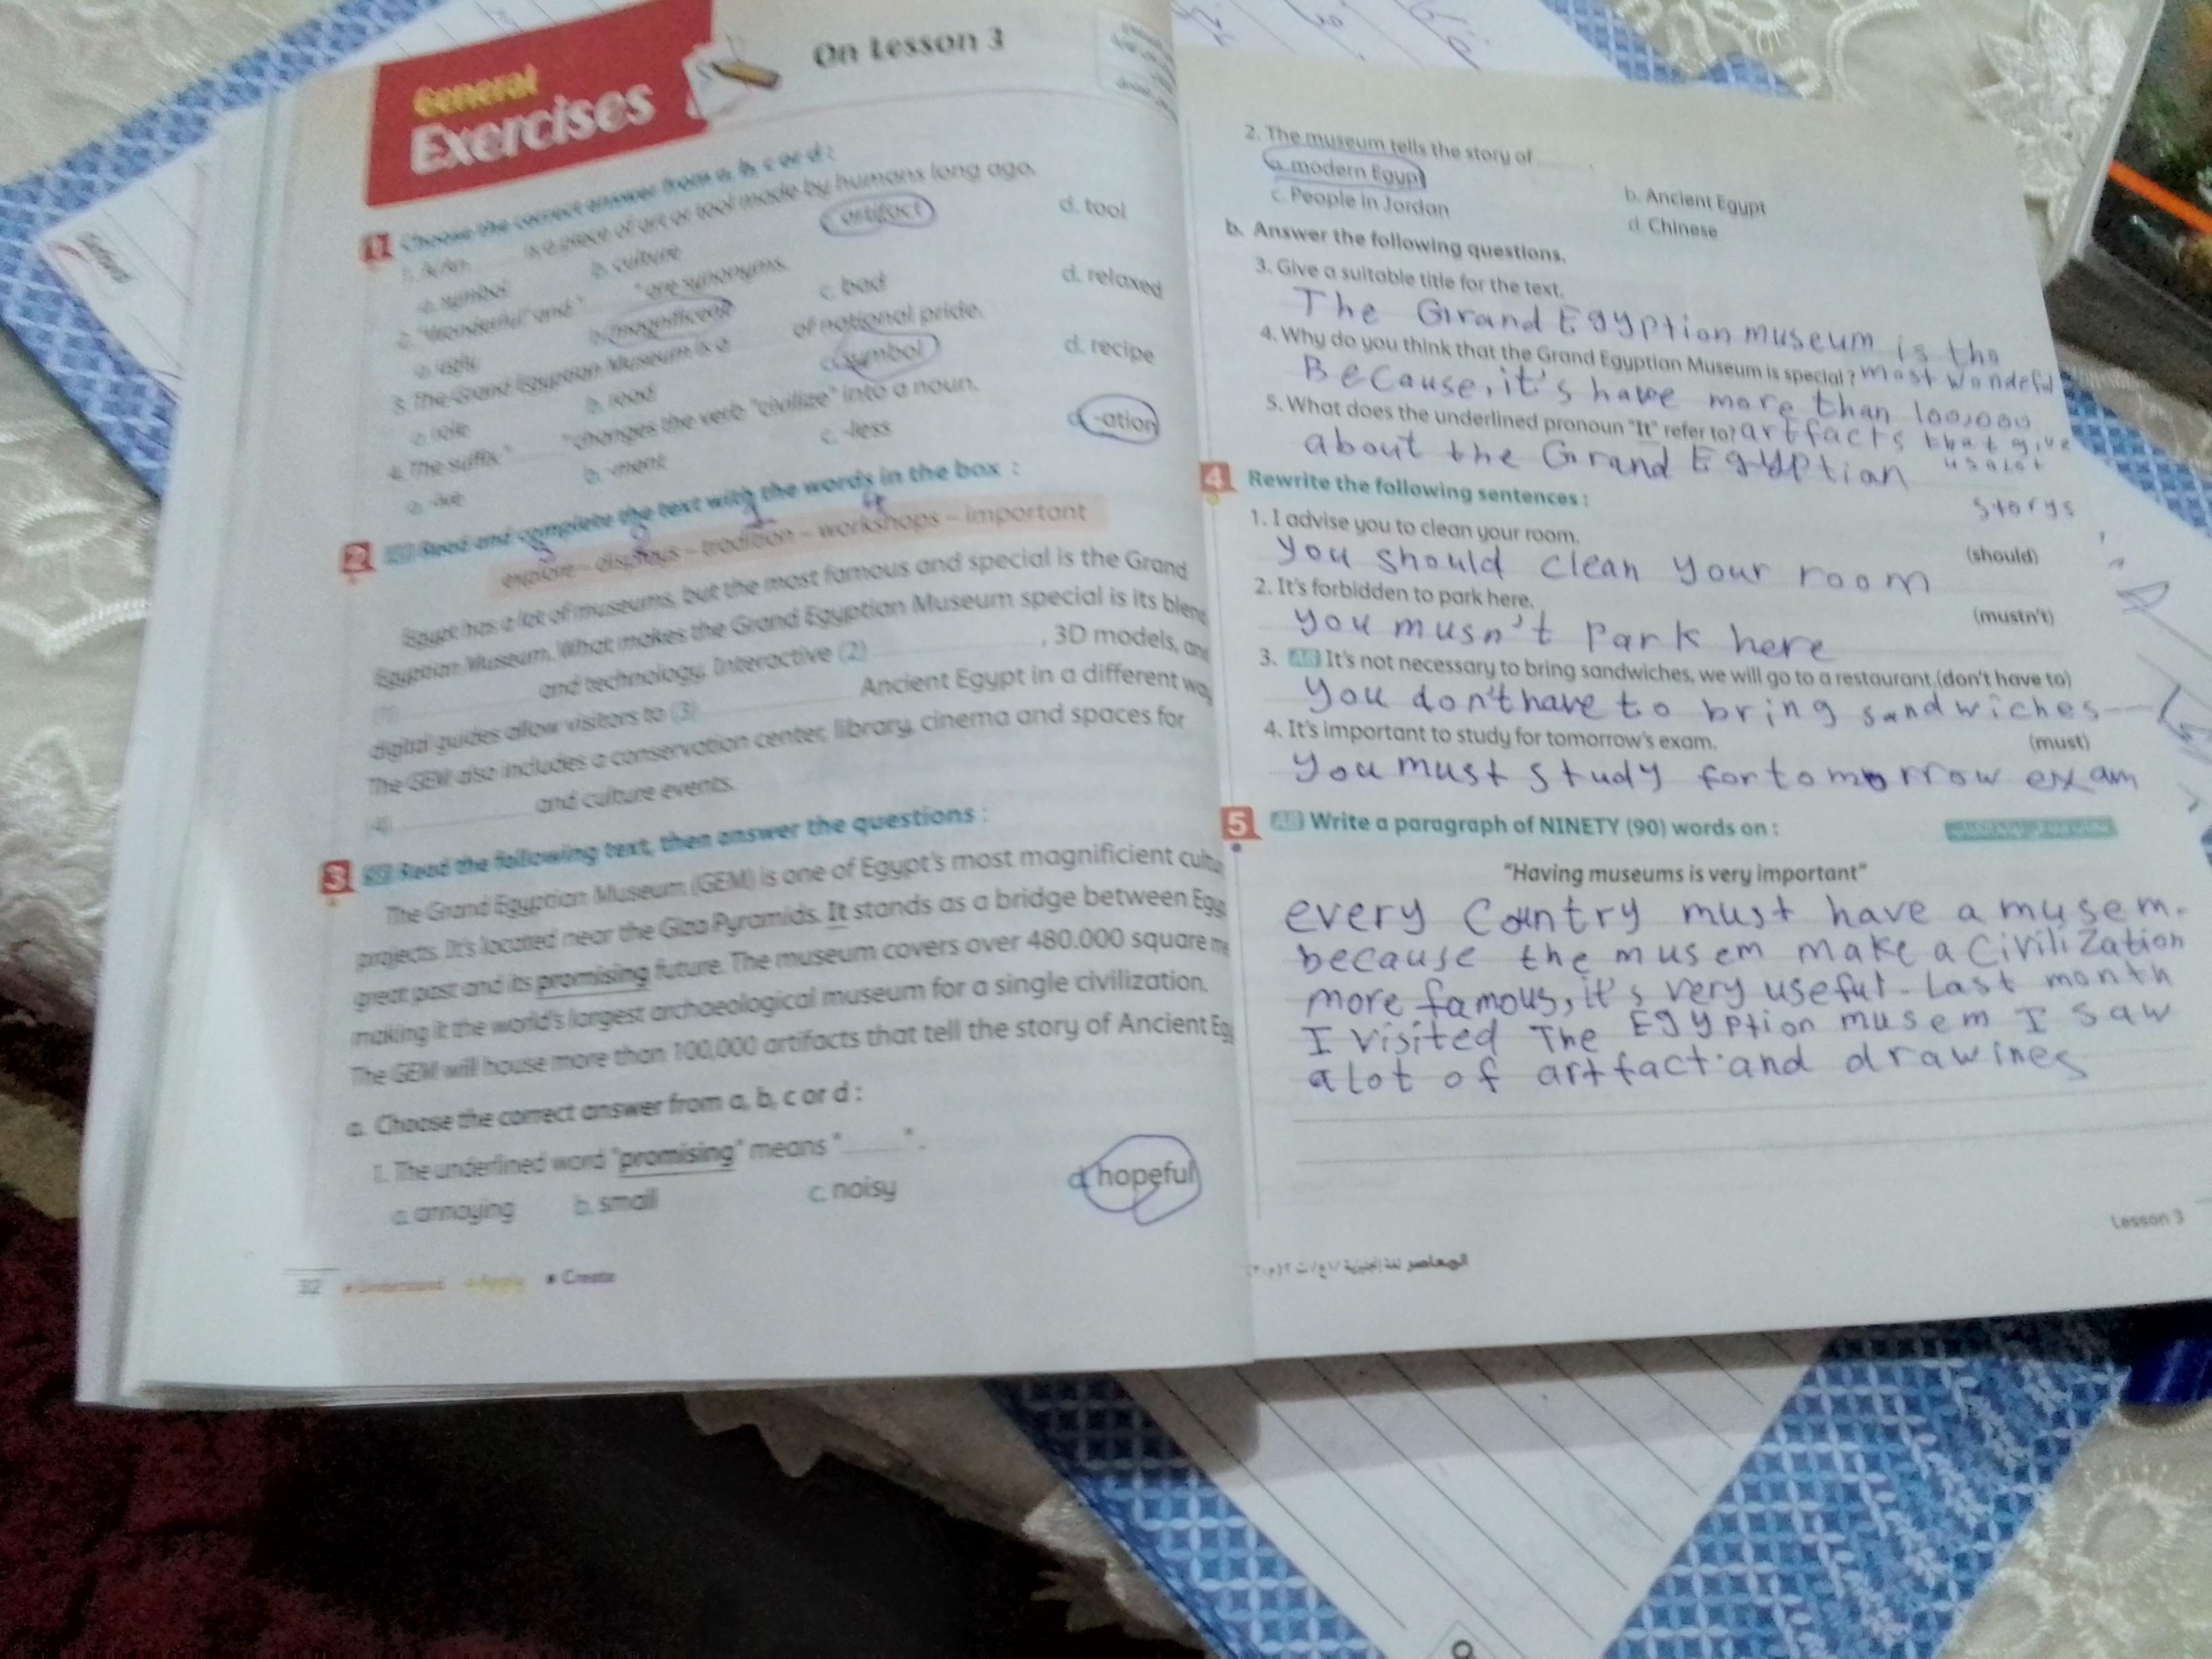 General
Exercises
On Lesson 3
1 Choose the correct answer from a, b, c or d :
1. A/An is a piece of art or tool made by humans long ago.
a. symbol b. culture c. artifact d. tool
2. "Wonderful" and " " are synonyms.
a. ugly b. magnificent c. bad d. relaxed
3. The Grand Egyptian Museum is a of national pride.
a. role b. road c. symbol d. recipe
4. The suffix " " changes the verb "civilize" into a noun.
a. -ive b. -ment c. -less d. -ation
2 Read and complete the text with the words in the box :
explore – displays – tradition – workshops – important
Egypt has a lot of museums, but the most famous and special is the Grand
Egyptian Museum. What makes the Grand Egyptian Museum special is its blend
(1) and technology. Interactive (2) , 3D models, and
digital guides allow visitors to (3) Ancient Egypt in a different way
The GEM also includes a conservation center, library, cinema and spaces for
(4) and culture events.
3 Read the following text, then answer the questions :
The Grand Egyptian Museum (GEM) is one of Egypt's most magnificient cultu
projects. It's located near the Giza Pyramids. It stands as a bridge between Egy
great past and its promising future. The museum covers over 480.000 square me
making it the world's largest archaeological museum for a single civilization.
The GEM will house more than 100,000 artifacts that tell the story of Ancient Egy
a. Choose the correct answer from a, b, c or d :
1. The underlined word "promising" means " ".
a. annoying b. small c. noisy d. hopeful
32 Understand Apply Create
2. The museum tells the story of .
a. modern Egypt b. Ancient Egypt
c. People in Jordan d. Chinese
b. Answer the following questions.
3. Give a suitable title for the text.
The Grand Egyption museum is the
most wondeful
4. Why do you think that the Grand Egyptian Museum is special ?
Because, it's have more than 100,000
artfacts that give
us alot
storys
5. What does the underlined pronoun "It" refer to?
about the Grand Egyptian
4 Rewrite the following sentences :
1. I advise you to clean your room. (should)
you should clean your room
2. It's forbidden to park here. (mustn't)
you musn't Park here
3. It's not necessary to bring sandwiches, we will go to a restaurant.(don't have to)
you don't have to bring sandwiches
4. It's important to study for tomorrow's exam. (must)
you must study for tomorrow exam
5 Write a paragraph of NINETY (90) words on :
"Having museums is very important"
every Country must have a musem.
because the musem make a Civilization
more famous, it's very useful. Last month
I visited The Egyption musem I saw
a lot of artfact and drawines
Lesson 3
المعاصر لغة إنجليزية